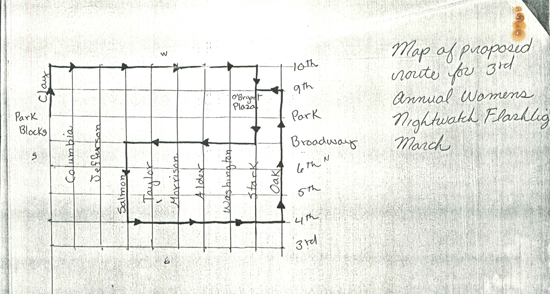 Map of proposed
route for 3rd
Annual Womens
Nightwatch Flashlig
March
W
10th
9th
Park
Broadway
6th N
5th
4th
3rd
Clay
Park
Blocks
S
Columbia
Jefferson
Salmon
Taylor
Morrison
Alder
Washington
Stark
Oak
O'Bryant
Plaza